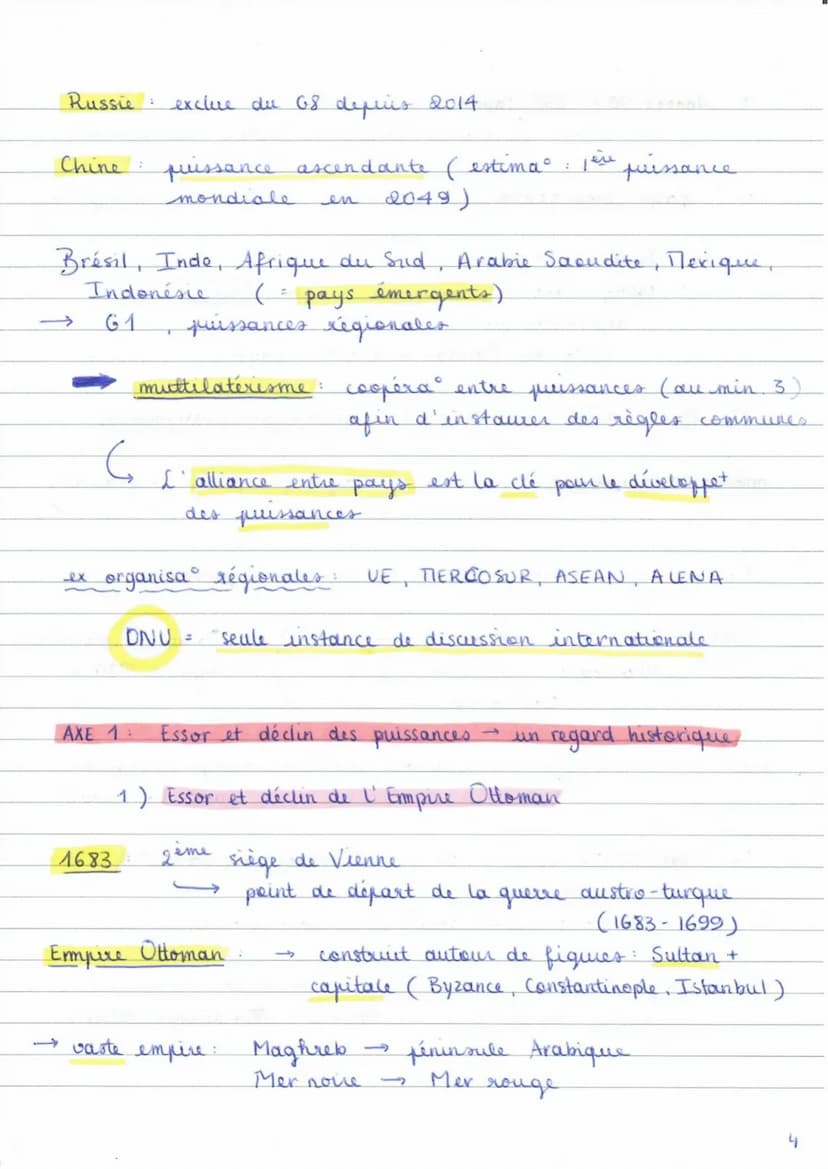 Russie : exclue du G8 depuis 2014
Chine : puissance ascendante ( estima° : 1ère puissance
mondiale en 2049 )
Brésil, Inde, Afrique du Sud, Arabie Saoudite, Mexique,
Indonésie ( = pays émergents )
→ G1 , puissances régionales
➡ multilatérisme : coopéra° entre puissances ( au min. 3 )
afin d'instaurer des règles communes
↪ L'alliance entre pays est la clé pour le développet
des puissances
ex organisa° régionales : UE, MERCOSUR, ASEAN, ALENA
ONU = seule instance de discussion internationale
AXE 1 : Essor et déclin des puissances → un regard historique
1 ) Essor et déclin de l'Empire Ottoman
1683 : 2ème siège de Vienne
↳ point de départ de la guerre austro-turque
( 1683 - 1699 )
Empire Ottoman : → construit autour de figures : Sultan +
capitale ( Byzance, Constantinople, Istanbul )
→ vaste empire : Maghreb → péninsule Arabique
Mer noire → Mer rouge
4